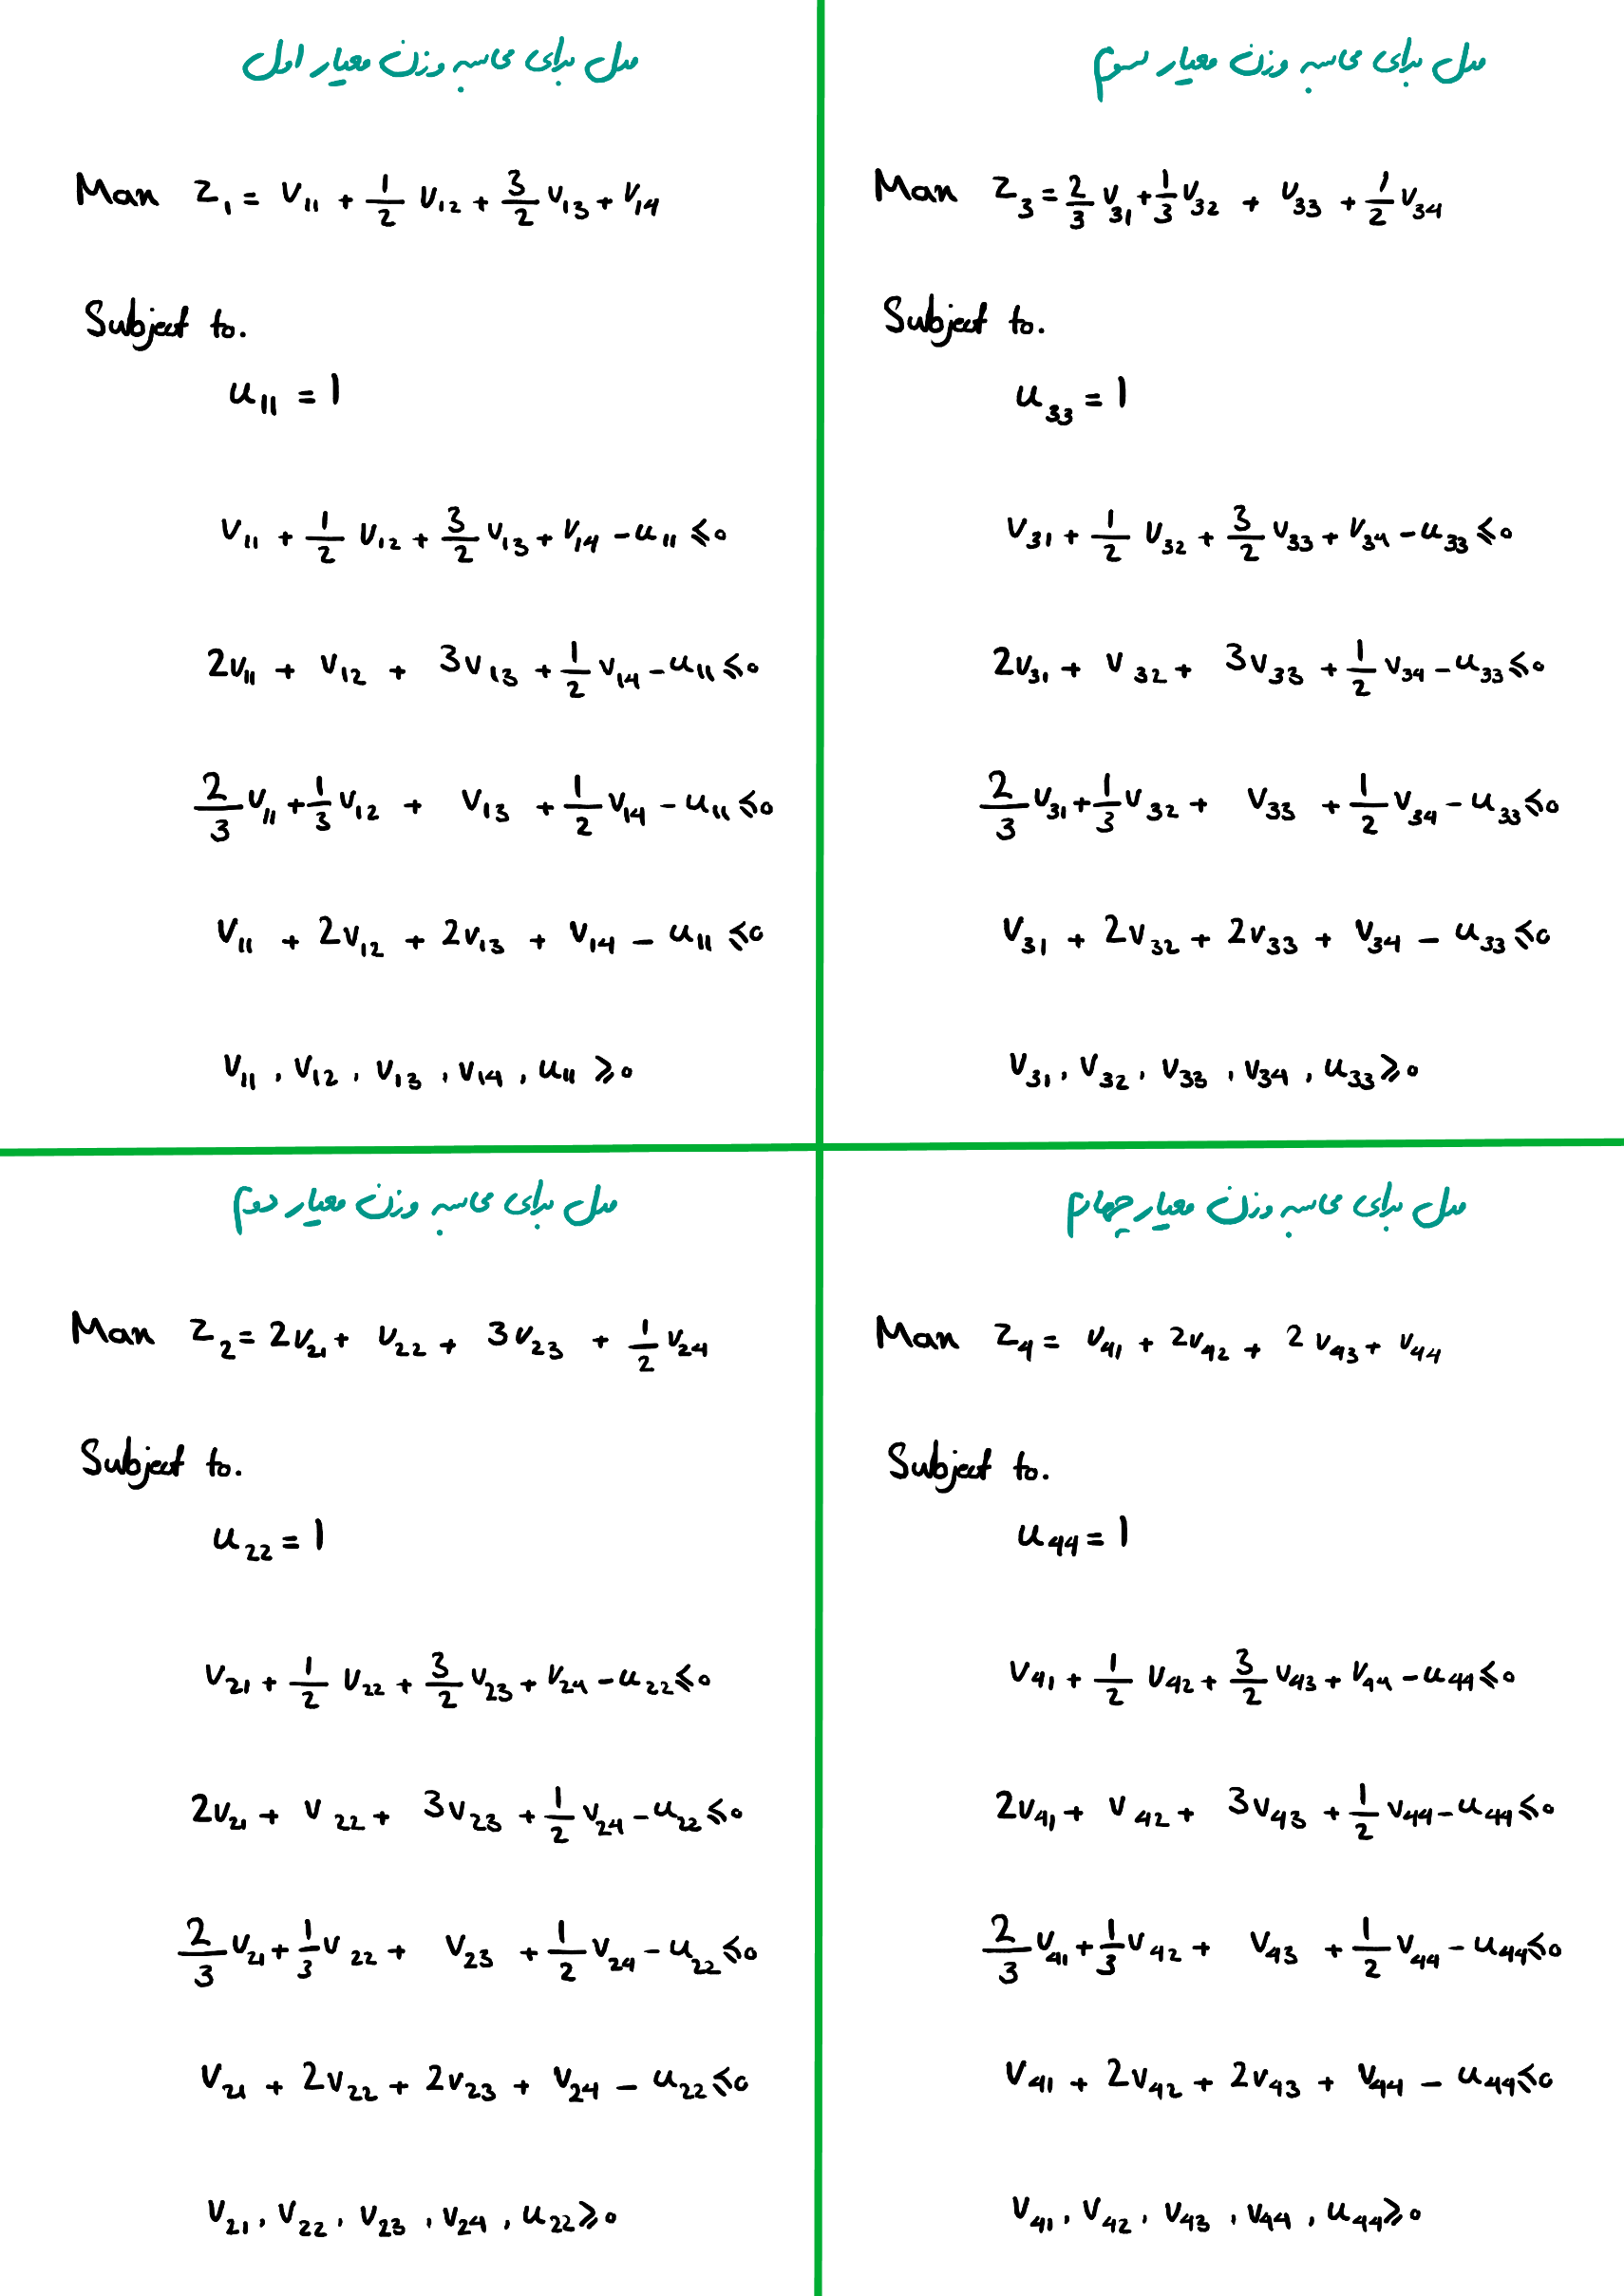 مدل برای محاسبه وزن معیار اول
Max z₁ = v₁₁ + 1/2 v₁₂ + 3/2 v₁₃ + v₁₄
Subject to.
u₁₁ = 1
v₁₁ + 1/2 v₁₂ + 3/2 v₁₃ + v₁₄ - u₁₁ ≤ 0
2v₁₁ + v₁₂ + 3v₁₃ + 1/2 v₁₄ - u₁₁ ≤ 0
2/3 v₁₁ + 1/3 v₁₂ + v₁₃ + 1/2 v₁₄ - u₁₁ ≤ 0
v₁₁ + 2v₁₂ + 2v₁₃ + v₁₄ - u₁₁ ≤ 0
v₁₁, v₁₂, v₁₃, v₁₄, u₁₁ ≥ 0
مدل برای محاسبه وزن معیار سوم
Max z₃ = 2/3 v₃₁ + 1/3 v₃₂ + v₃₃ + 1/2 v₃₄
Subject to.
u₃₃ = 1
v₃₁ + 1/2 v₃₂ + 3/2 v₃₃ + v₃₄ - u₃₃ ≤ 0
2v₃₁ + v₃₂ + 3v₃₃ + 1/2 v₃₄ - u₃₃ ≤ 0
2/3 v₃₁ + 1/3 v₃₂ + v₃₃ + 1/2 v₃₄ - u₃₃ ≤ 0
v₃₁ + 2v₃₂ + 2v₃₃ + v₃₄ - u₃₃ ≤ 0
v₃₁, v₃₂, v₃₃, v₃₄, u₃₃ ≥ 0
مدل برای محاسبه وزن معیار دوم
Max z₂ = 2v₂₁ + v₂₂ + 3v₂₃ + 1/2 v₂₄
Subject to.
u₂₂ = 1
v₂₁ + 1/2 v₂₂ + 3/2 v₂₃ + v₂₄ - u₂₂ ≤ 0
2v₂₁ + v₂₂ + 3v₂₃ + 1/2 v₂₄ - u₂₂ ≤ 0
2/3 v₂₁ + 1/3 v₂₂ + v₂₃ + 1/2 v₂₄ - u₂₂ ≤ 0
v₂₁ + 2v₂₂ + 2v₂₃ + v₂₄ - u₂₂ ≤ 0
v₂₁, v₂₂, v₂₃, v₂₄, u₂₂ ≥ 0
مدل برای محاسبه وزن معیار چهارم
Max z₄ = v₄₁ + 2v₄₂ + 2v₄₃ + v₄₄
Subject to.
u₄₄ = 1
v₄₁ + 1/2 v₄₂ + 3/2 v₄₃ + v₄₄ - u₄₄ ≤ 0
2v₄₁ + v₄₂ + 3v₄₃ + 1/2 v₄₄ - u₄₄ ≤ 0
2/3 v₄₁ + 1/3 v₄₂ + v₄₃ + 1/2 v₄₄ - u₄₄ ≤ 0
v₄₁ + 2v₄₂ + 2v₄₃ + v₄₄ - u₄₄ ≤ 0
v₄₁, v₄₂, v₄₃, v₄₄, u₄₄ ≥ 0